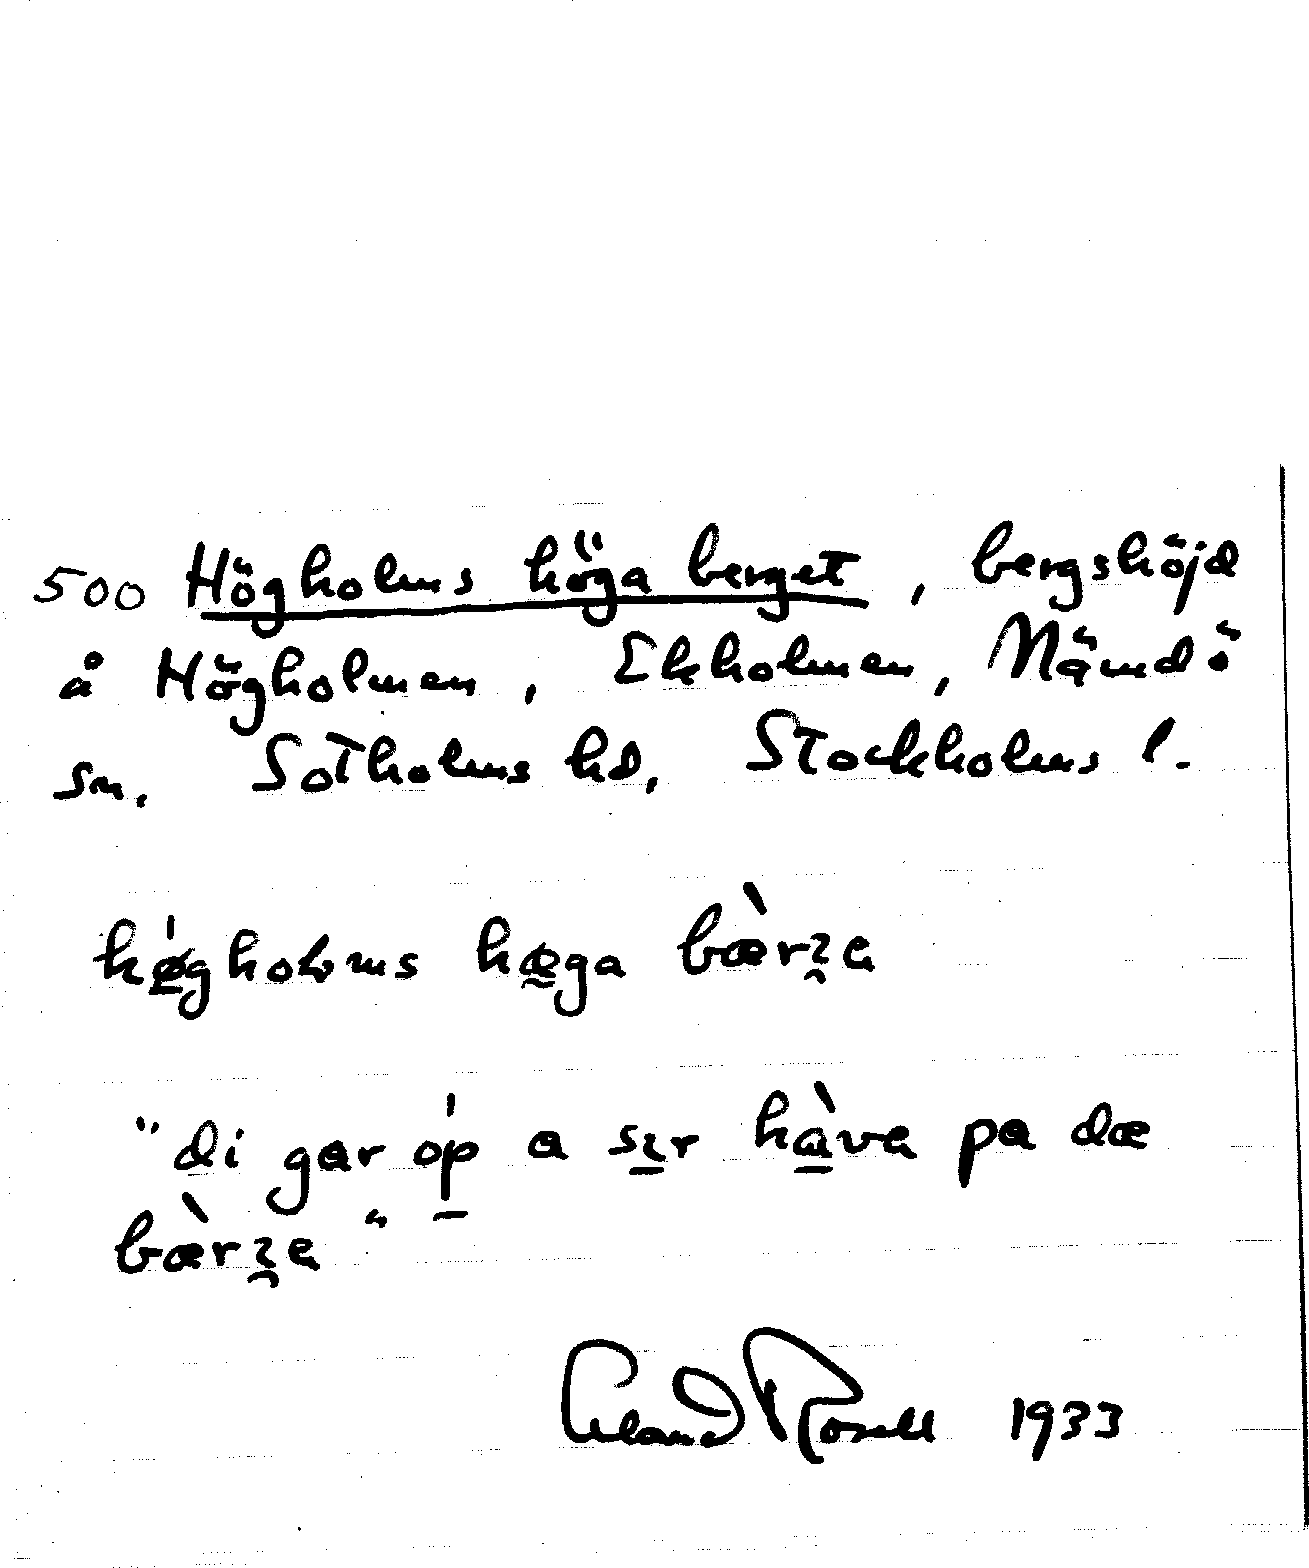 500 Högholms höga berget, bergshöjd
å Högholmen, Ekholmen, Nämdö
sn. Sotholms hd, Stockholms l.
hǿ̠gholms hæ̰ga bæ̀rʒ̑a
"di gar ó̠p a sɿ̠r hà̠va pa dæ
bæ̀rʒ̑a"
Erland Rosell 1933